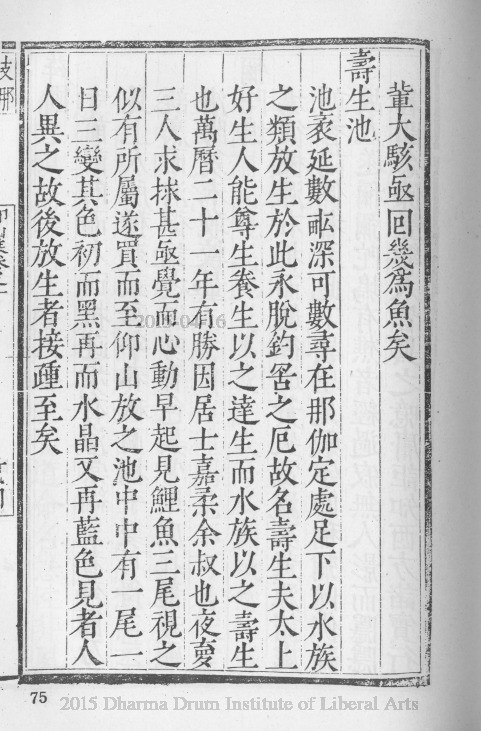 軰大駭亟回幾為魚矣
壽生池
池袤延數畝深可數尋在那伽定處足下以水族
之類放生於此永脫鈎罟之厄故名壽生夫太上
好生人能尊生養生以之達生而水族以之壽生
也萬曆二十一年有勝因居士嘉柔余叔也夜夢
三人求救甚亟覺而心動早起見鯉魚三尾視之
似有所屬遂買而至仰山放之池中中有一尾一
日三變其色初而黑再而水晶又再藍色見者人
人異之故後放生者接踵至矣
2015-04-16
75
2015 Dharma Drum Institute of Liberal Arts